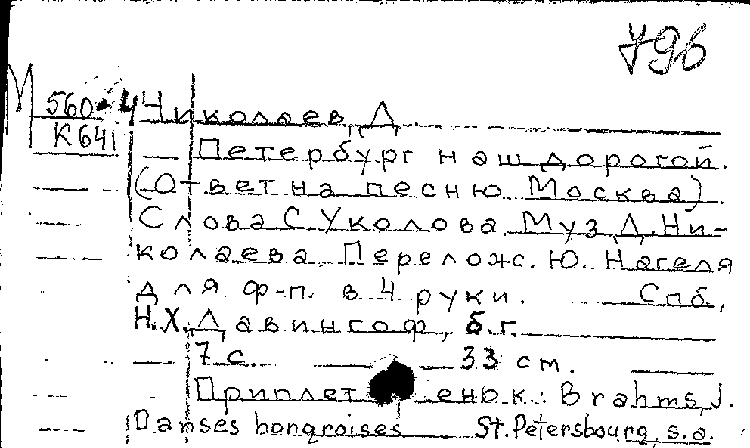 796
М 560-4 Николаев, Д.
К 641
Петербург наш дорогой.
(Ответ на песню Москва)
Слова С. Уколова. Муз. Д. Ни-
колаева. Перелож. Ю. Нагеля
для ф-п. в 4 руки. Спб,
Н.Х. Давингоф, б.г.
7 с. 33 см.
Приплет ено к: Brahms, J.
Danses hongroises St. Petersbourg, s.a.